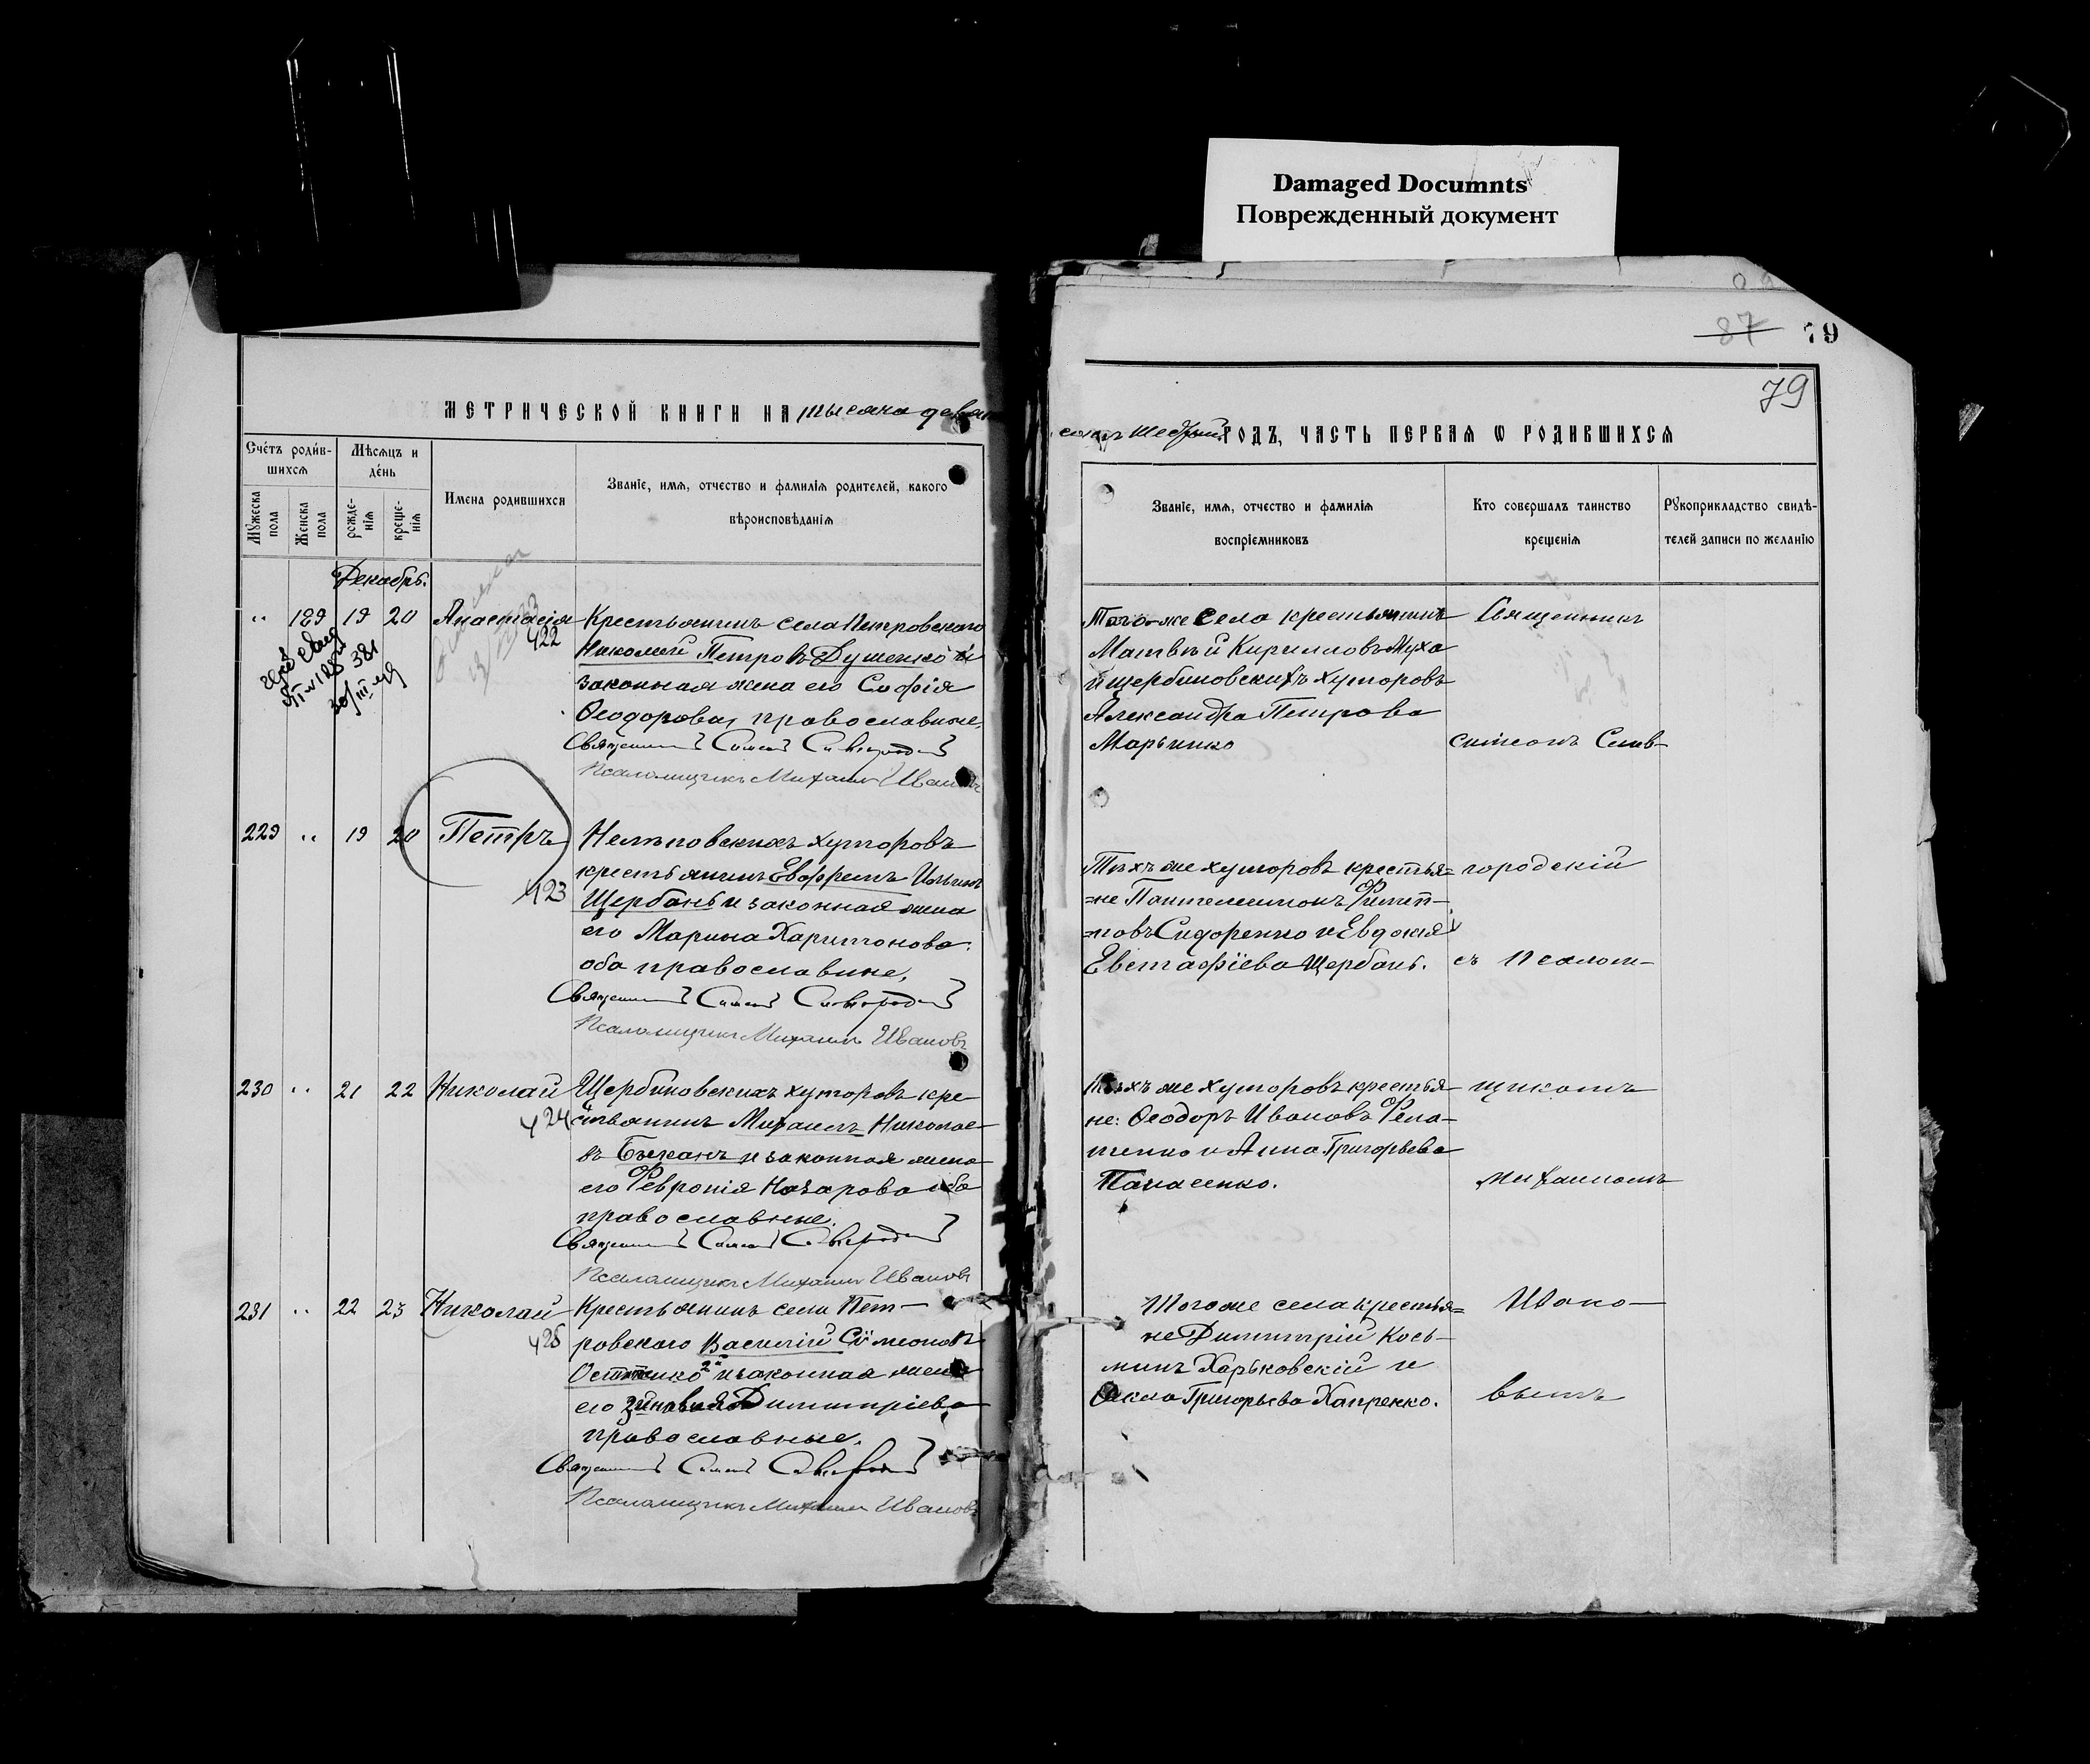 Damaged Documnts
Поврежденный документ
87 79
79
МЕТРИЧЕСКОЙ КНИГИ НА тысяча девят
сотъ шестый ГОДЪ, ЧАСТЬ ПЕРВАЯ Ѡ РОДИВШИХСЯ
Счетъ родив-
шихся
Мѣсяцъ и
день
Мужеска пола
Женска пола
рожде-
нія
креще-
нія
Имена родившихся
Званіе, имя, отчество и фамилія родителей, какого
вѣроисповѣданія
Званіе, имя, отчество и фамилія
воспріемниковъ
Кто совершалъ таинство
крещенія
Рукоприкладство свидѣ-
телей записи по желанію
Декабрь.
„ 189 19 20 Анастасія
422
Крестьянинъ села Петровскаго
Николай Петровъ Душенко и
законная жена его Софія
Ѳеодорова, православные.
Священникъ Симеонъ Сивгородскій
Псаломщикъ Михаилъ Ивановъ
Того-же села крестьянинъ
Матвѣй Кирилловъ Муха
и щербиновскихъ хуторовъ
Александра Петрова
Марьинко
Священникъ
Симеонъ Сив-
229 „ 19 20 Петръ
423
Нелѣповскихъ хуторовъ
крестьянинъ Евфремъ Ильинъ
Щербань и законная жена
его Марина Харитонова.
оба православные.
Священникъ Симеонъ Сивгородскій
Псаломщикъ Михаилъ Ивановъ
Тѣхъ же хуторовъ крестья=
=не Пантелеимонъ Филип-
=повъ Сидоренко и Евдокія
Евстафіева Щербань.
городскій
съ Псалом-
230 „ 21 22 Николай
424
Щербиновскихъ хуторовъ кре-
стьянинъ Михаилъ Николае-
въ Бжканъ и законная жена
его Февронія Назарова оба
православные.
Священникъ Симеонъ Сивгородскій
Псаломщикъ Михаилъ Ивановъ
Тѣхъ же хуторовъ крестья-
не: Ѳеодоръ Ивановъ Фела-
тенко и Анна Григорьева
Панасенко.
щикомъ
Михаиломъ
231 „ 22 23 Николай
425
Крестьянинъ села Пет-
ровскаго Василій Сѵмеоновъ
2й и законная жена
его Зиновія Димитріева
православные.
Священникъ Симеонъ Сивгородскій
Псаломщикъ Михаилъ Ивановъ
Того же села крестья=
не Димитрій Кось-
минъ Харьковскій и
Ѳекла Григорьева Капренко.
Ивано-
вымъ